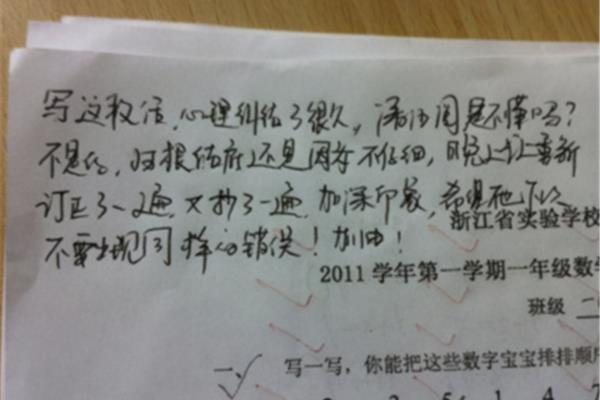 写这段话,心理纠结了很久,潘汤周是不懂吗?
不是的,归根结底还是因为不仔细,昨晚上让重新
订正了一遍,又抄了一遍,加深印象,希望他下次
不要出现同样的错误!加油!
浙江省实验学校
2011学年第一学期一年级数学
班级 二
一、写一写,你能把这些数字宝宝排排顺序
2 3 5 1 4 7